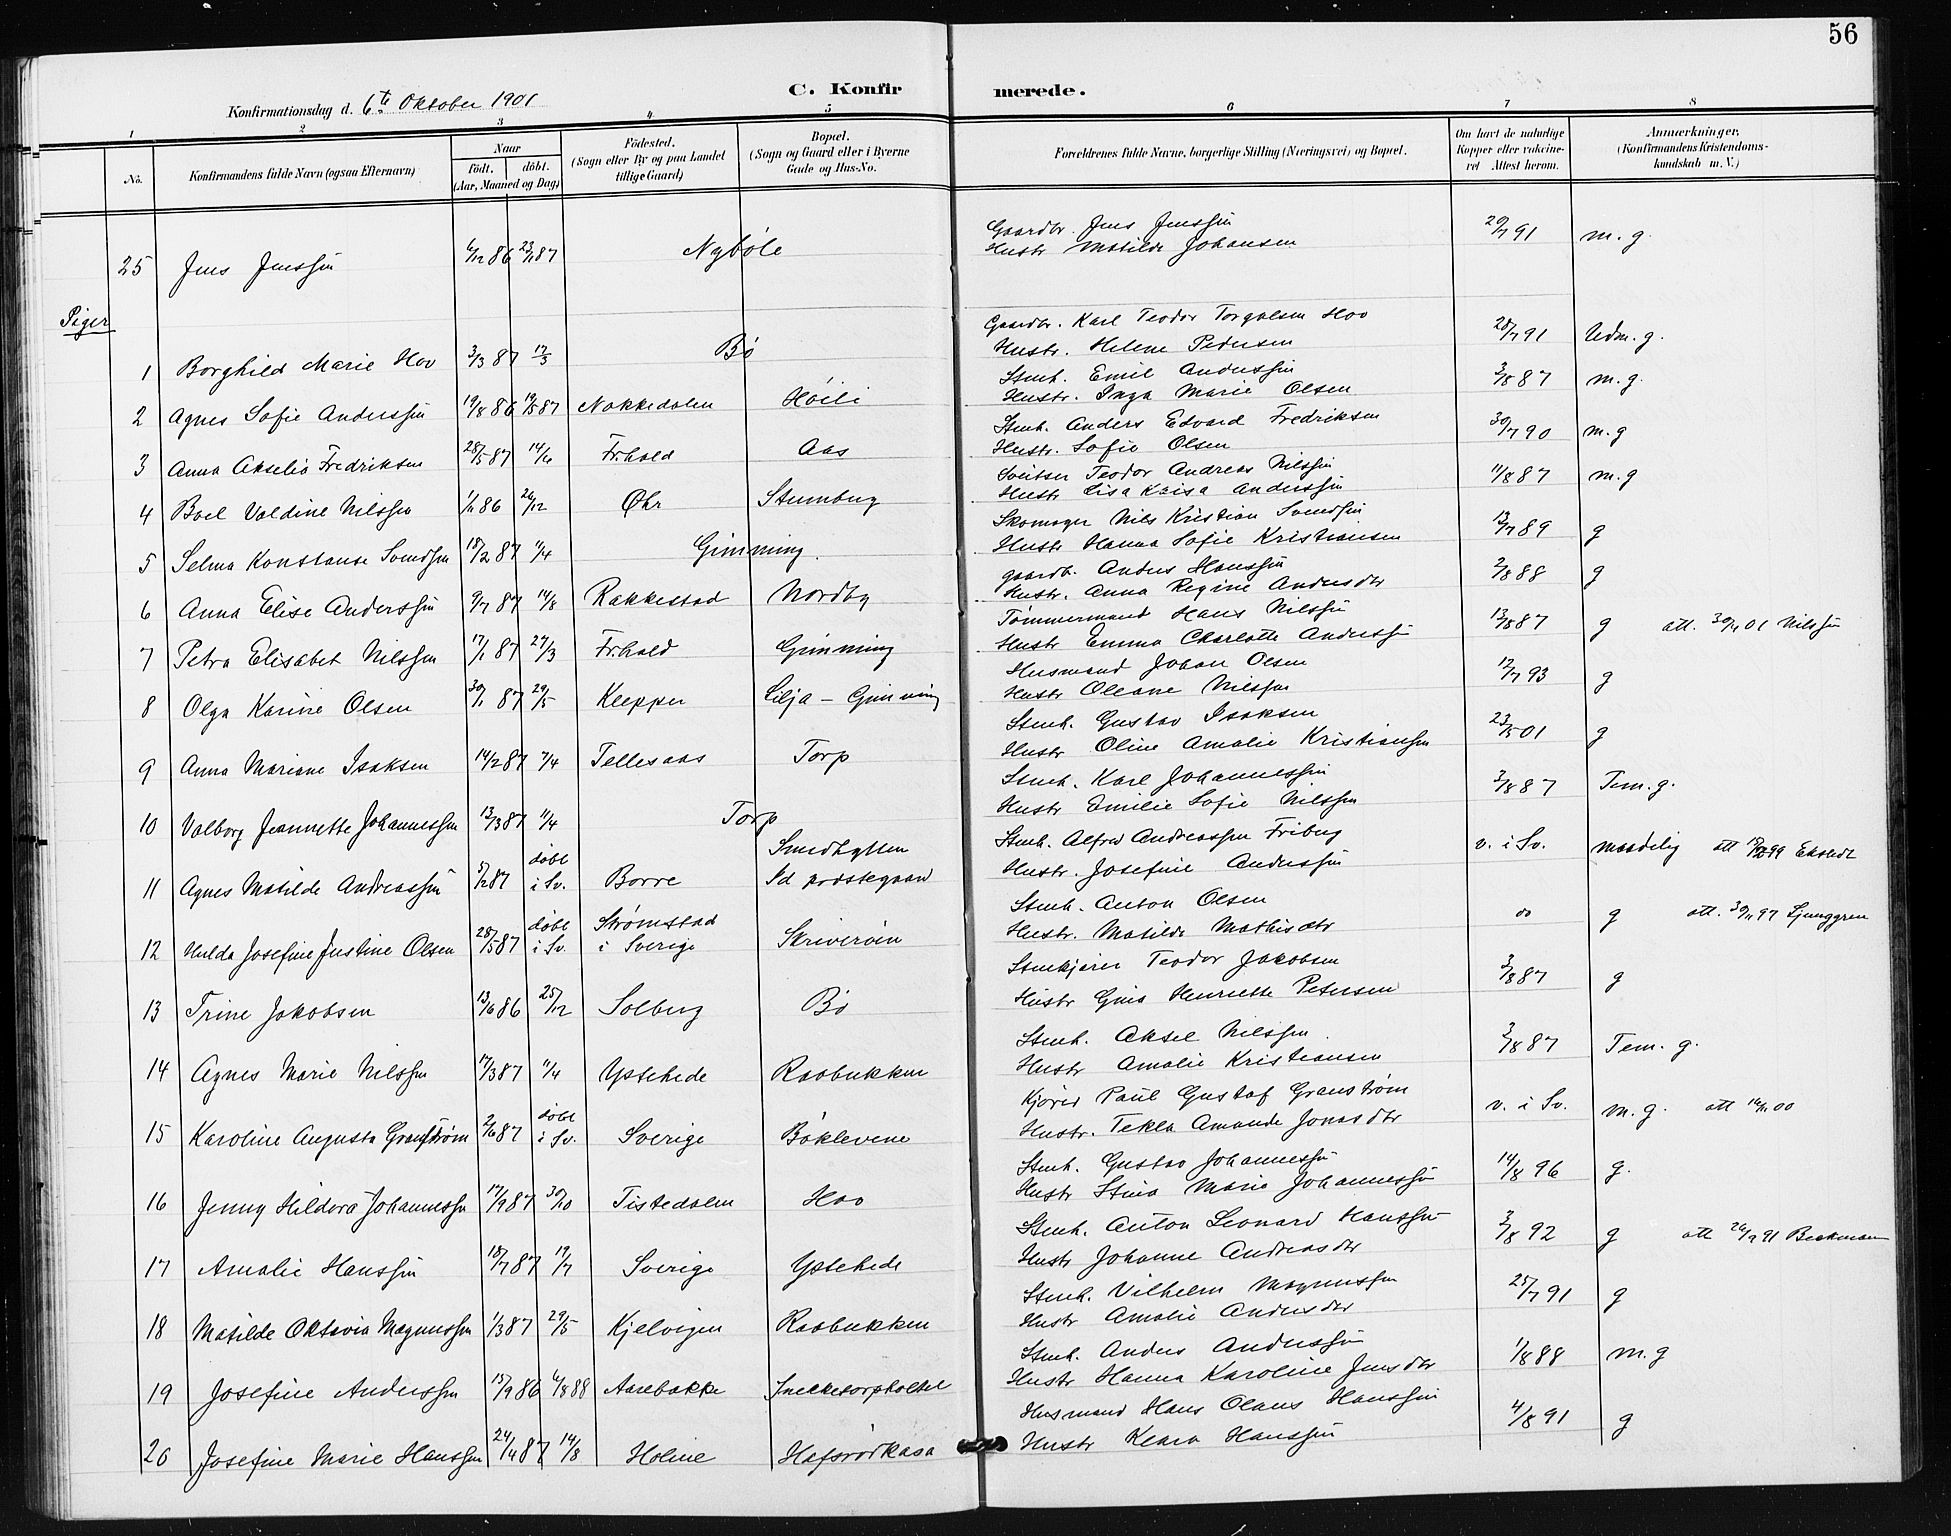 56
C. Konfirmerede.
Konfirmationsdag d. 6te Oktober 1901
1 2 3 4 5 6 7 8
No. Konfirmandens fulde Navn (ogsaa Efternavn) Naar født. døbt. (Aar, Maaned og Dag) Fødested. (Sogn eller By og paa Landet tillige Gaard) Bopæl. (Sogn og Gaard eller i Byerne Gade og Hus-No. Forældrenes fulde Navne, borgerlige Stilling (Næringsvei) og Bopæl. Om havt de naturlige Kopper eller vakcineret Attest herom. Anmærkninger. (Konfirmandens Kristendomskundskab m. V.)
25 Jens Jenssen 6/12 86 23/1 87 Nybøle Gaardbr. Jens Jenssen 20/7 91 m. g.
Hustr Matilde Johansen
Piger
1 Borghild Marie Hov 3/3 87 17/3 Bø Gaardbr. Karl Teodor Torgalsen Hov 28/7 91 Udm. g.
Hustr. Helene Pedersen
2 Agnes Sofie Anderssen 19/8 86 19/5 87 Nokkedalen Høili Stenh. Emil Anderssen 3/8 87 m. g.
Hustr. Inga Marie Olsen
3 Anna Akselia Fredriksen 28/5 87 14/6 Fr.hald Aas Stenh. Anders Edvard Fredriksen 30/7 90 m. g
Hustr. Sofie Olsen
4 Boel Valdine Nilssen 1/11 86 26/12 Øhr Stumberg Sveitser Teodor Andreas Nilssen 11/8 87 m. g
Hustr Lisa Kaisa Anderssen
5 Selma Konstanse Svendsen 18/2 87 11/4 Gimming. Skomager Nils Kristian Svendsen 13/7 89 g
Hustr Hanna Sofie Kristiansen
6 Anna Elise Anderssen 9/7 87 14/8 Rakkestad Nordby gaardb. Anders Hanssen 2/8 88 g
Hustr. Anna Regine Andersdtr
7 Petra Elisabet Nilssen 17/1 87 27/3 Fr.hald Gimming Tømmermand Hans Nilssen 13/8 87 g att. 30/4 01 Nilssen
Hustr Emma Charlotte Anderssen
8 Olga Karine Olsen 30/1 87 29/5 Klepper Lilja - Gimming Husmand Johan Olsen 12/7 93 g
Hustr Oleane Nilssen
9 Anna Mariane Isaksen 14/2 87 7/4 Tellesaas Torp Stenh. Gustav Isaksen 23/5 01 g
Hustr Oline Amalie Kristiansen
10 Valborg Jeannette Johannessen 13/3 87 11/4 Torp Stenh. Karl Johannessen 3/8 87 Tem. g.
Hustr Emilie Sofie Nilssen
11 Agnes Matilde Andreassen 5/2 87 døbt i Sv. Borre Smedhytten Id prestegaard Stenh. Alfred Andreassen Friberg v. i Sv. maadelig
Hustr. Josefine Anderssen
12 Hulda Josefine Justine Olsen 28/5 87 døbt i Sv. Strømstad i Sverige Skriverøen Stenh. Anton Olsen do g att. 30/11 97 Ljunggren
Hustr. Matilde Mathisdtr
13 Trine Jakobsen 13/6 86 25/12 Solberg Bø Stenkjører Teodor Jakobsen 3/8 87 g
Hustr Gina Henriette Petersen
14 Agnes Marie Nilssen 17/3 87 11/4 Ystehede Raabukken Stenh. Aksel Nilssen 3/8 87 Tem. g.
Hustr Amalie Kristiansen
15 Karoline Augusta Granstrøm 2/6 87 døbt i Sv. Sverige Bøklevene Kjører Paul Gustaf Granstrøm v. i Sv. m. g. att 14/11 00
Hustr. Tekla Amanda Jonasdtr
16 Jenny Hildora Johannessen 17/9 87 30/10 Tistedalen Hov Stenh. Gustav Johannessen 14/8 96 g.
Hustr Stina Maria Johannessen
17 Amalie Hanssen 18/7 87 19/7 Sverige Ystehede Stenh. Anton Leonard Hanssen 3/8 92 g att 26/9 91 Beckman
Hustr Johanne Andreasdtr
18 Matilde Oktavia Magnussen 1/3 87 29/5 Kjelvigen Raabukken Stenh. Vilhelm Magnussen 25/7 91 g
Hustr Amalie Andersdtr
19 Josefine Anderssen 15/9 86 6/8 88 Aarebakke Snekketorpholtet Stenh. Anders Anderssen 1/8 88 m. g
Hustr Hanna Karoline Jensdtr
20 Josefine Marie Hanssen 24/4 87 14/8 Holme Hafsrødkasa Husmand Hans Olaus Hanssen 4/8 91 g
Hustr Klara Hanssen